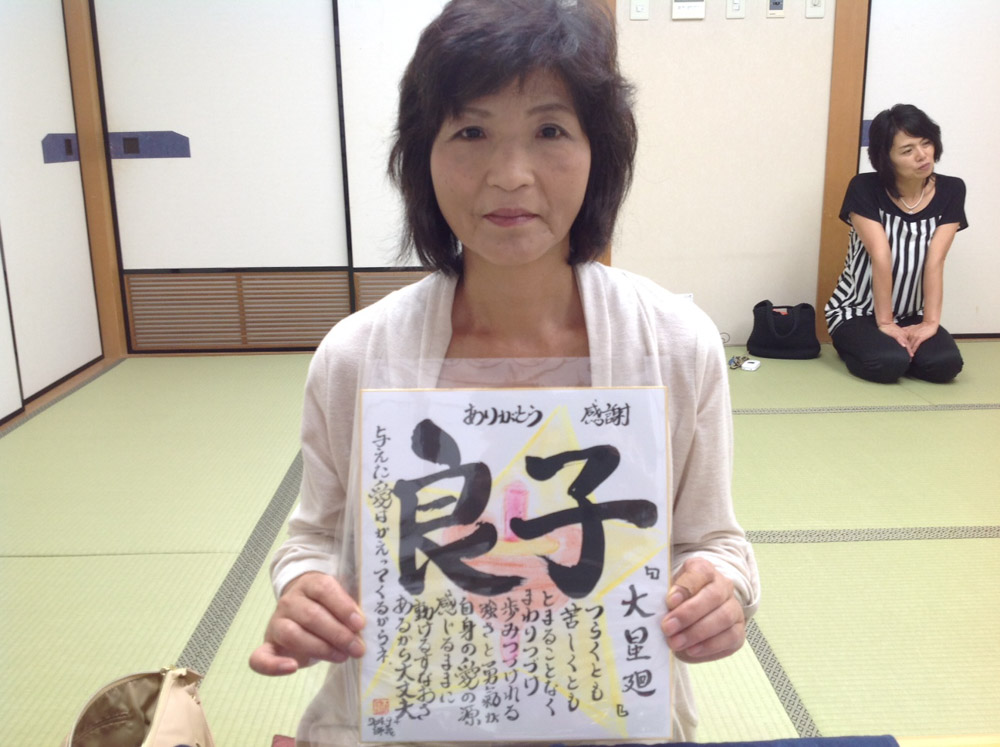 ありがとう 感謝
良子
『大星廻』
つらくとも
苦しくとも
とまることなく
まわりつづけ
歩みつづけれる
強さと勇氣が
自身の愛の源
感じるままに
動けるすなおさ
あるから大丈夫
与えた愛はかえってくるからネ